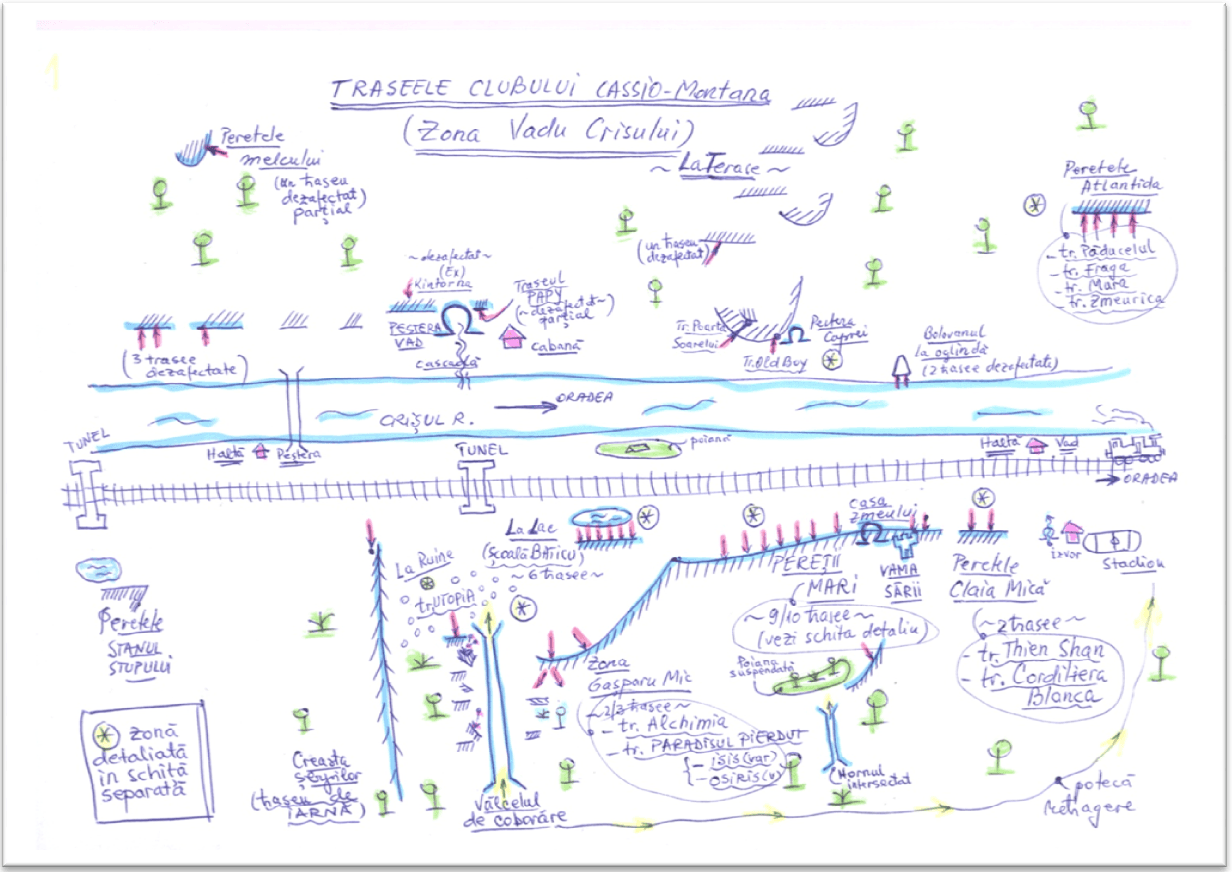 1
TRASEELE CLUBULUI CASSIO-Montana
(Zona Vadu Crisului)
~ La Terase ~
Peretele
melcului
(un traseu
dezafectat)
parțial
Peretele
Atlantida
- tr. Păducelul
- tr. Fraga
- tr. Mara
- tr. Zmeurica
(un traseu
dezafectat)
~ dezafectat ~
(Ex)
Kintorna
Traseul
PAPY
(~ dezafectat ~
parțial
PEȘTERA
VAD
cabană
cascadă
(3 trasee
dezafectate)
Tr. Poarta
Soarelui
Tr. Old Boy
Peștera
Caprei
Bolovanul
la oglindă
(2 trasee dezafectate)
ORADEA
CRIȘUL R.
TUNEL
Haltă Peștera
TUNEL
poiană
Haltă Vad
ORADEA
La Lac
(școală BATICU)
~ 6 trasee ~
Casa
Zmeului
PEREȚII
MARI
~ 9/10 trasee ~
(vezi schita detaliu)
VAMA
SĂRII
Peretele
Claia Mică
~ 2 trasee ~
- tr. Thien Shan
- tr. Cordiliera
Blanca
izvor
Stadion
La Ruine
tr. UTOPIA
Peretele
STANUL
STUPULUI
Zona
Gasparu Mic
~ 2/3 trasee ~
- tr. Alchimia
- tr. PARADISUL PIERDUT
- ISIS (var)
- OSIRIS (v)
Poiana
suspendată
Hornul
intersectat
zonă
detaliată
în schită
separată
Creasta
(traseu de
IARNĂ)
Vâlcelul
de coborâre
potecă
retragere